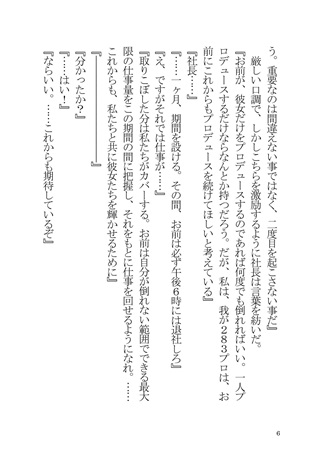 う。重要なのは間違えない事ではなく、二度目を起こさない事だ』
　厳しい口調で、しかしこちらを激励するように社長は言葉を紡いだ。
『お前が、彼女だけをプロデュースするのであれば何度でも倒れればいい。一人プ
ロデュースするだけならなんとか持つだろう。だが、私は、我が２８３プロは、お
前にこれからもプロデュースを続けてほしいと考えている』
『社長……』
『……一ヶ月、期間を設ける。その間、お前は必ず午後６時には退社しろ』
『え、ですがそれでは仕事が……』
『取りこぼした分は私たちがカバーする。お前は自分が倒れない範囲でできる最大
限の仕事量をこの期間の間に把握し、それをもとに仕事を回せるようになれ。……
これからも、私たちと共に彼女たちを輝かせるために』
『――――――――』
『分かったか？』
『……はい！』
『ならいい。……これからも期待しているぞ』
6